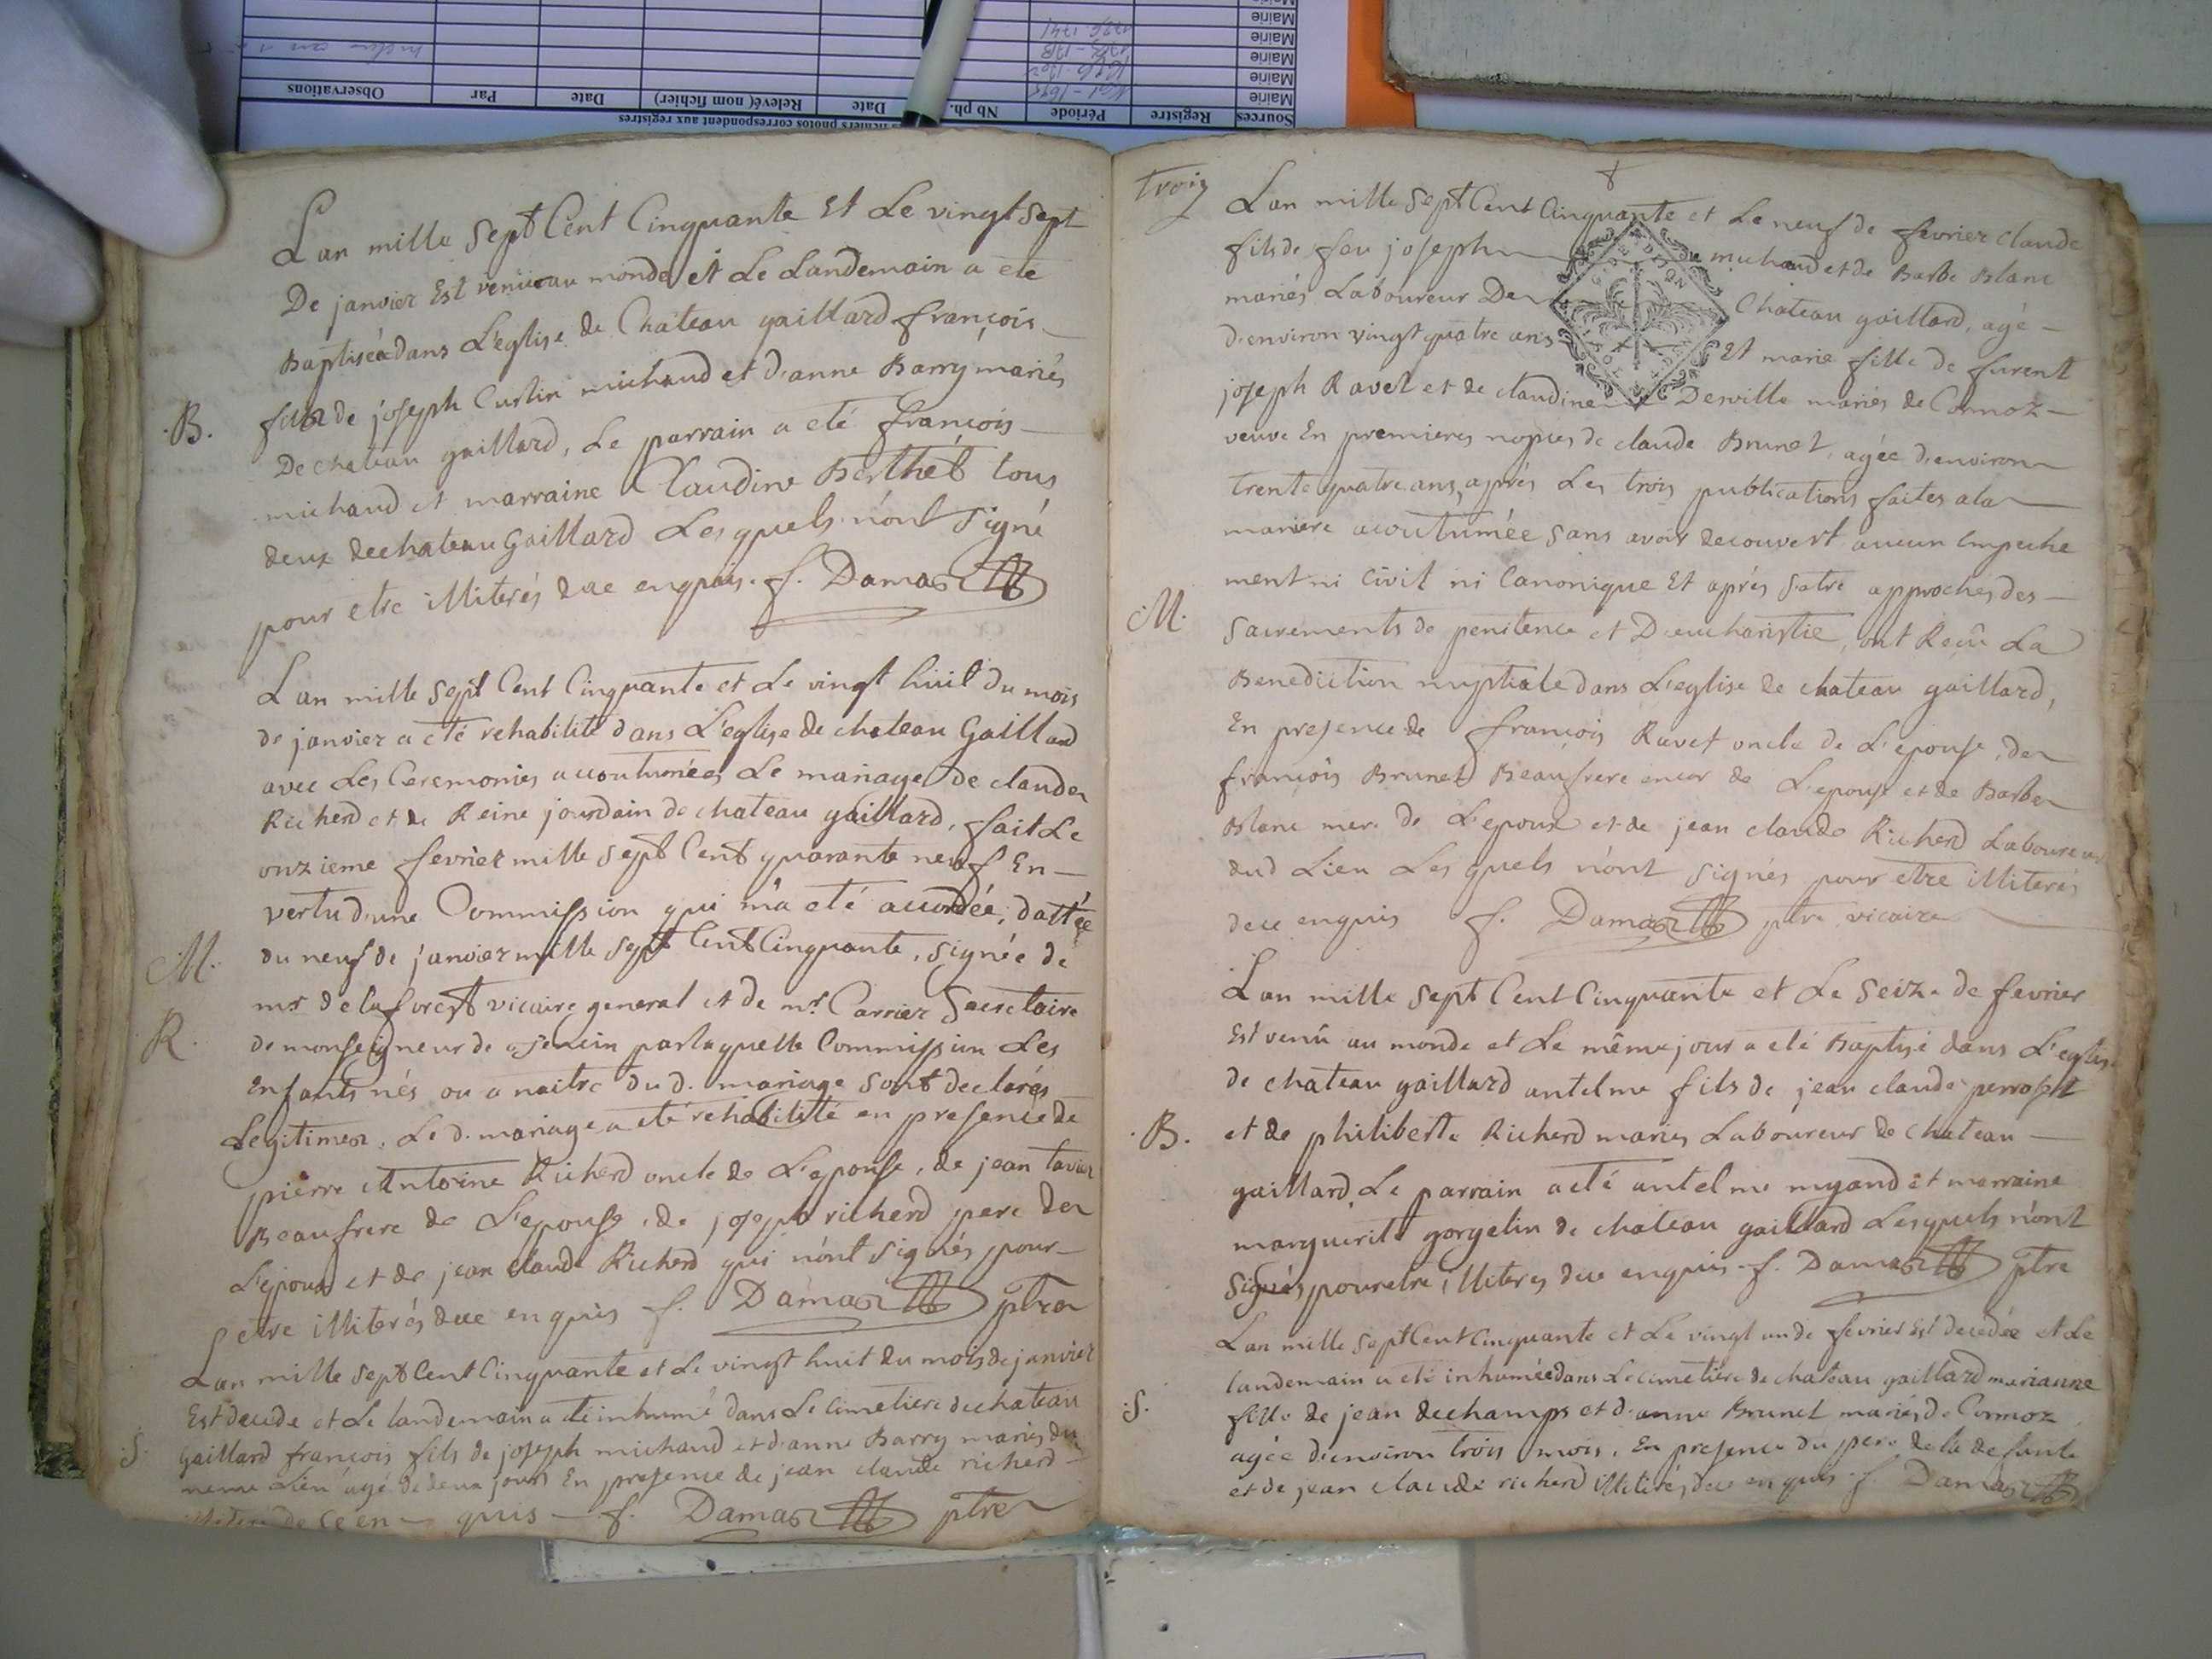 Sources Registre Période Nb ph. Date Relevé(nom fichier) Date Par Observations
Mairie
Mairie
Mairie
Mairie
Mairie
Lan mille Sept Cent Cinquante Et Le vingt Sept
De janvier Est venü au monde et Le Landemain a eté
Baptisé dans L'eglise de Chateau gaillard françois
.B.
fils de joseph Curtin michaud et d'anne Barry mariés
De chateau gaillard, Le parrain a eté françois
michaud et marraine Claudine Berthet tous
deux de chateau Gaillard Lesquels n'ont Signé
pour etre illiterés de ce enquis. f. Damas
Lan mille Sept Cent Cinquante et Le vingt huit du mois
de janvier a eté rehabilité dans L'eglise de chateau Gaillard
avec Les Ceremonies accoutumées Le mariage de claude
Richerd et de Reine jourdain de chateau gaillard, fait Le
onzieme fevrier mille Sept Cent quarante neuf En
vertu d'une Commission qui m'a eté accordée, dattée
M.
du neuf de janvier mille Sept Cent Cinquante, signée de
mr de laforest vicaire general et de mr. Carrier Secretaire
R.
de monseigneur de par laquelle Commission Les
Enfants nés ou a naitre du d. mariage sont declarés
Legitimes. Le d. mariage a eté rehabilité en presence de
pierre Antoine Richerd oncle de L'epouse, de jean tavier
Beaufrere de L'epouse, de joseph richerd pere de
L'epoux et de jean claude Richerd qui n'ont signés pour
etre illiterés de ce enquis f. Damas ptre
Lan mille Sept Cent Cinquante et Le vingt huit du mois de janvier
Est decedé et Le landemain a eté inhumé dans Le cimetiere de chateau
S.
Gaillard françois fils de joseph michaud et d'anne Barry mariés du
meme Lieu agé de deux jours En presence de jean claude richerd
illiteré de ce en quis f. Damas ptre
trois
Lan mille Sept Cent Cinquante et Le neuf de fevrier claude
fils de feu joseph michaud et de Barbe Blanc
mariés Laboureur De Chateau gaillard, agé
d'environ vingt quatre ans Et marie fille de furent
joseph Ravet et de claudine Derville mariés de Cormoz
veuve En premieres nopces de claude Brunet, agée d'environ
trente quatre ans, aprés Les trois publications faites a la
maniere acoutumée sans avoir decouvert aucun Empeche
ment ni Civil ni Canonique Et aprés s'etre approchés des
M.
Sacrements de penitence et D'eucharistie, ont Reçû La
Benediction nuptiale dans L'eglise de chateau gaillard,
En presence de françois Ravet oncle de L'epouse, de
françois Brunet Beaufrere encor de L'epouse et de Barbe
Blanc mere de L'epoux et de jean claude Richerd Laboureur
dud Lieu Lesquels n'ont signés pour etre illiterés
de ce enquis f. Damas ptre vicaire
Lan mille Sept Cent Cinquante et Le Seize de fevrier
Est venû au monde et Le même jour a eté Baptisé dans L'eglise
de chateau gaillard antelme fils de jean claude perrost
.B.
et de philiberte Richerd mariés Laboureur de chateau
gaillard, Le parrain a eté antelme myand et marraine
marguerite gorgelin de chateau gaillard Lesquels n'ont
Signés pour etre illiteres de ce enquis f. Damas ptre
Lan mille Sept Cent Cinquante et Le vingt un de fevrier Est decedée et Le
landemain a eté inhumée dans Le cimetiere de chateau gaillard marianne
.S.
fille de jean dechamps et d'anne Brunet mariés de Cormoz
agée d'environ trois mois, En presence du pere de la defunte
et de jean claude richerd illiterés de ce enquis f. Damas